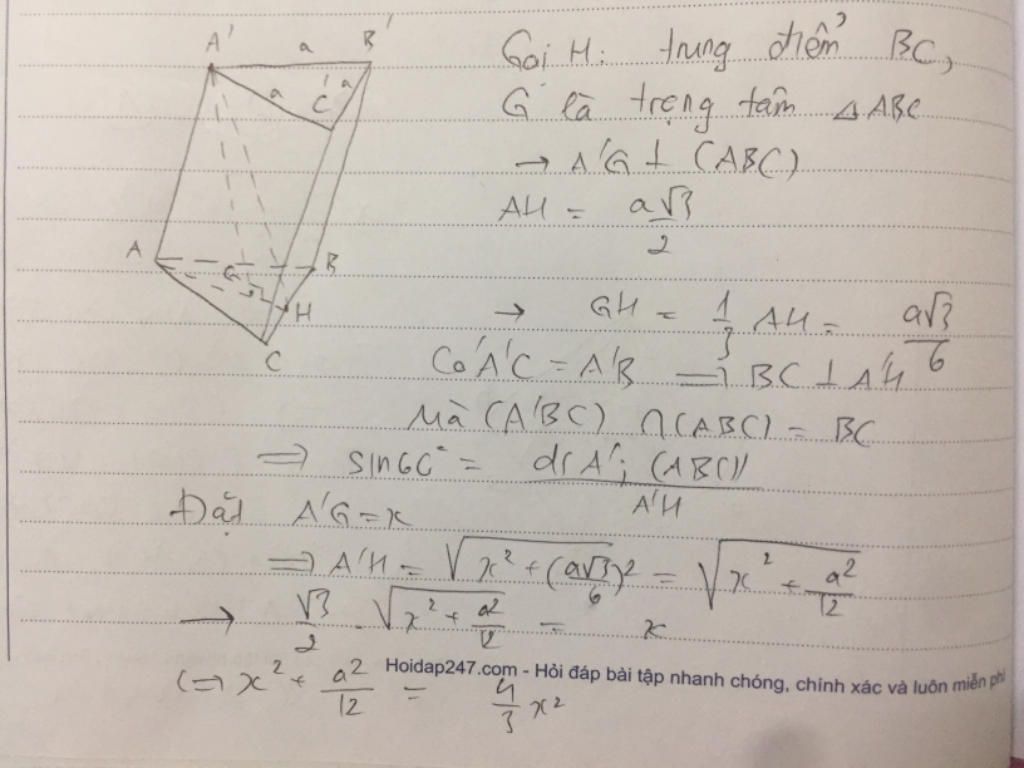 A' a B'
a C' a
A B
G H
C
Gọi H: trung điểm BC,
G là trọng tâm △ABC
→ A'G ⊥ (ABC)
AH = a√3/2
→ GH = 1/3 AH = a√3/6
Có A'C = A'B ⟹ BC ⊥ A'H
Mà (A'BC) ∩ (ABC) = BC
⟹ sin60° = d(A'; (ABC))/A'H
Đặt A'G = x
⟹ A'H = √(x² + (a√3/6)²) = √(x² + a²/12)
→ √3/2 . √(x² + a²/12) = x
Hoidap247.com - Hỏi đáp bài tập nhanh chóng, chính xác và luôn miễn phí
⟺ x² + a²/12 = 4/3 x²